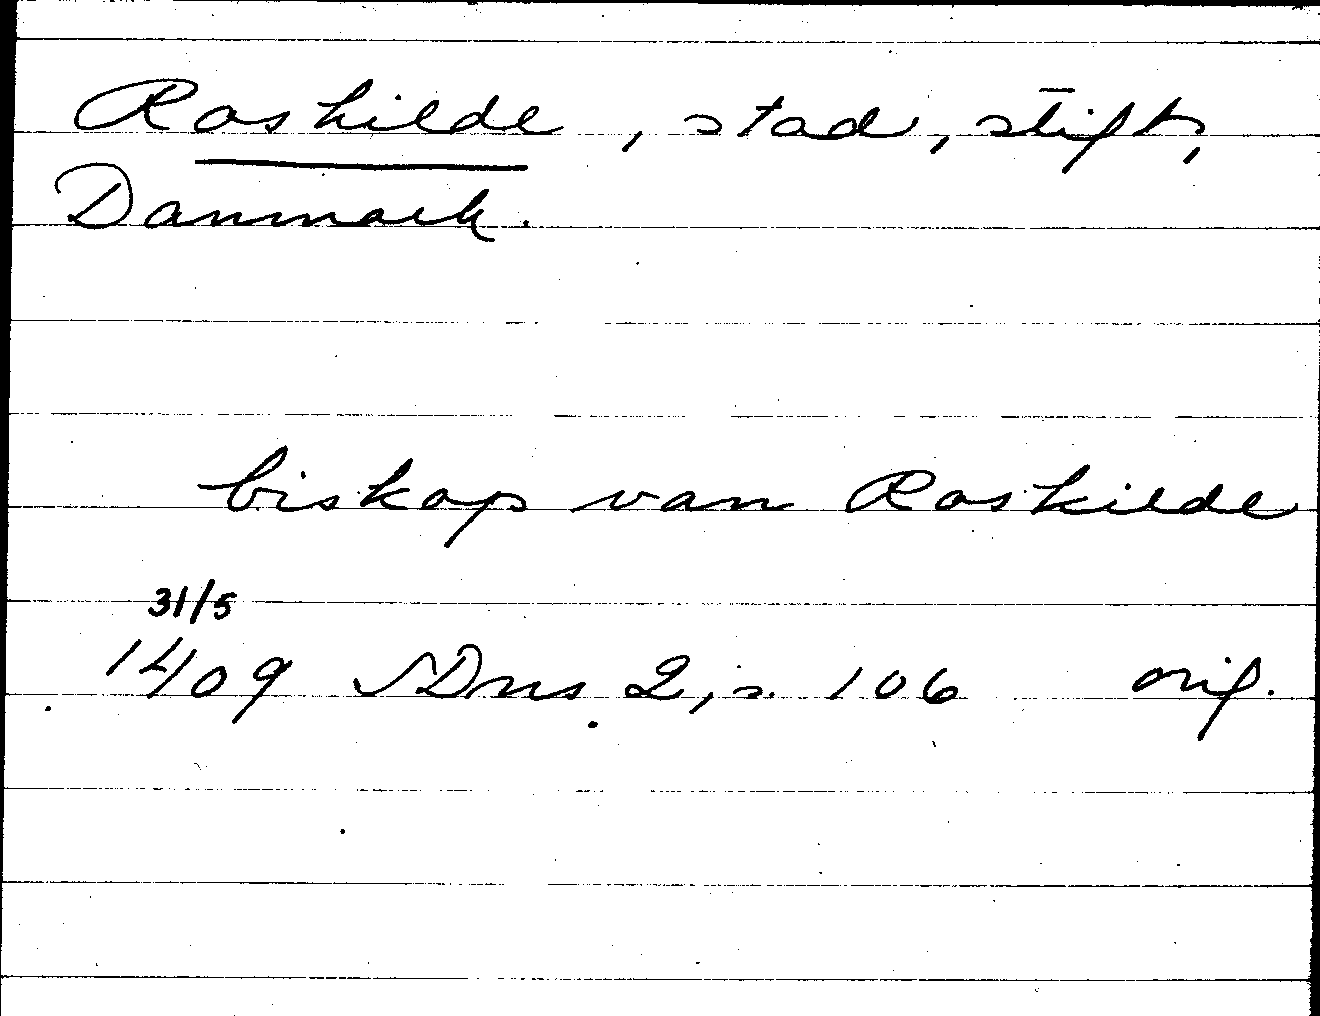 Roskilde, stad, stift,
Danmark.
biskop van Roskilde
31/5
1409 SDns 2, s. 106 orig.